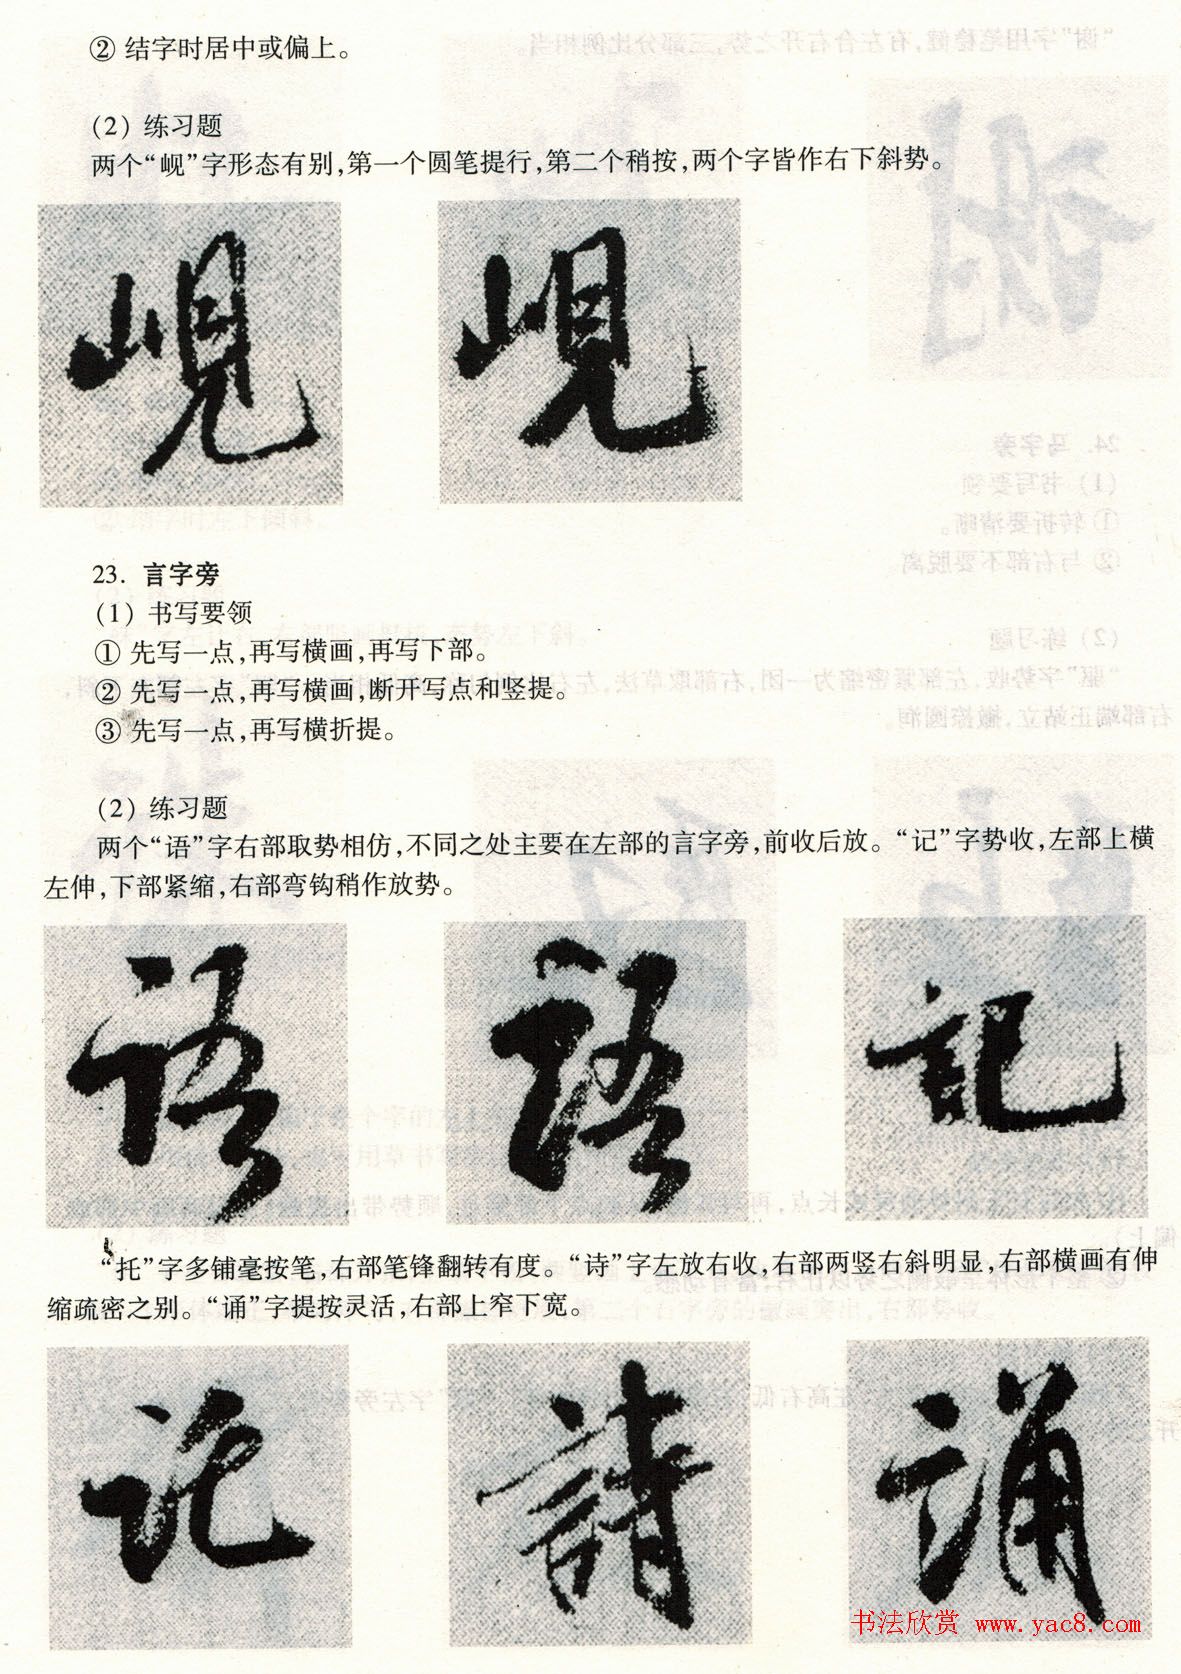 ② 结字时居中或偏上。
(2) 练习题
两个“岘”字形态有别，第一个圆笔提行，第二个稍按，两个字皆作右下斜势。
峴 峴
23. 言字旁
(1) 书写要领
① 先写一点，再写横画，再写下部。
② 先写一点，再写横画，断开写点和竖提。
③ 先写一点，再写横折提。
(2) 练习题
两个“语”字右部取势相仿，不同之处主要在左部的言字旁，前收后放。“记”字势收，左部上横
左伸，下部紧缩，右部弯钩稍作放势。
語 語 記
“托”字多铺毫按笔，右部笔锋翻转有度。“诗”字左放右收，右部两竖右斜明显，右部横画有伸
缩疏密之别。“诵”字提按灵活，右部上窄下宽。
託 詩 誦
书法欣赏 www.yac8.com